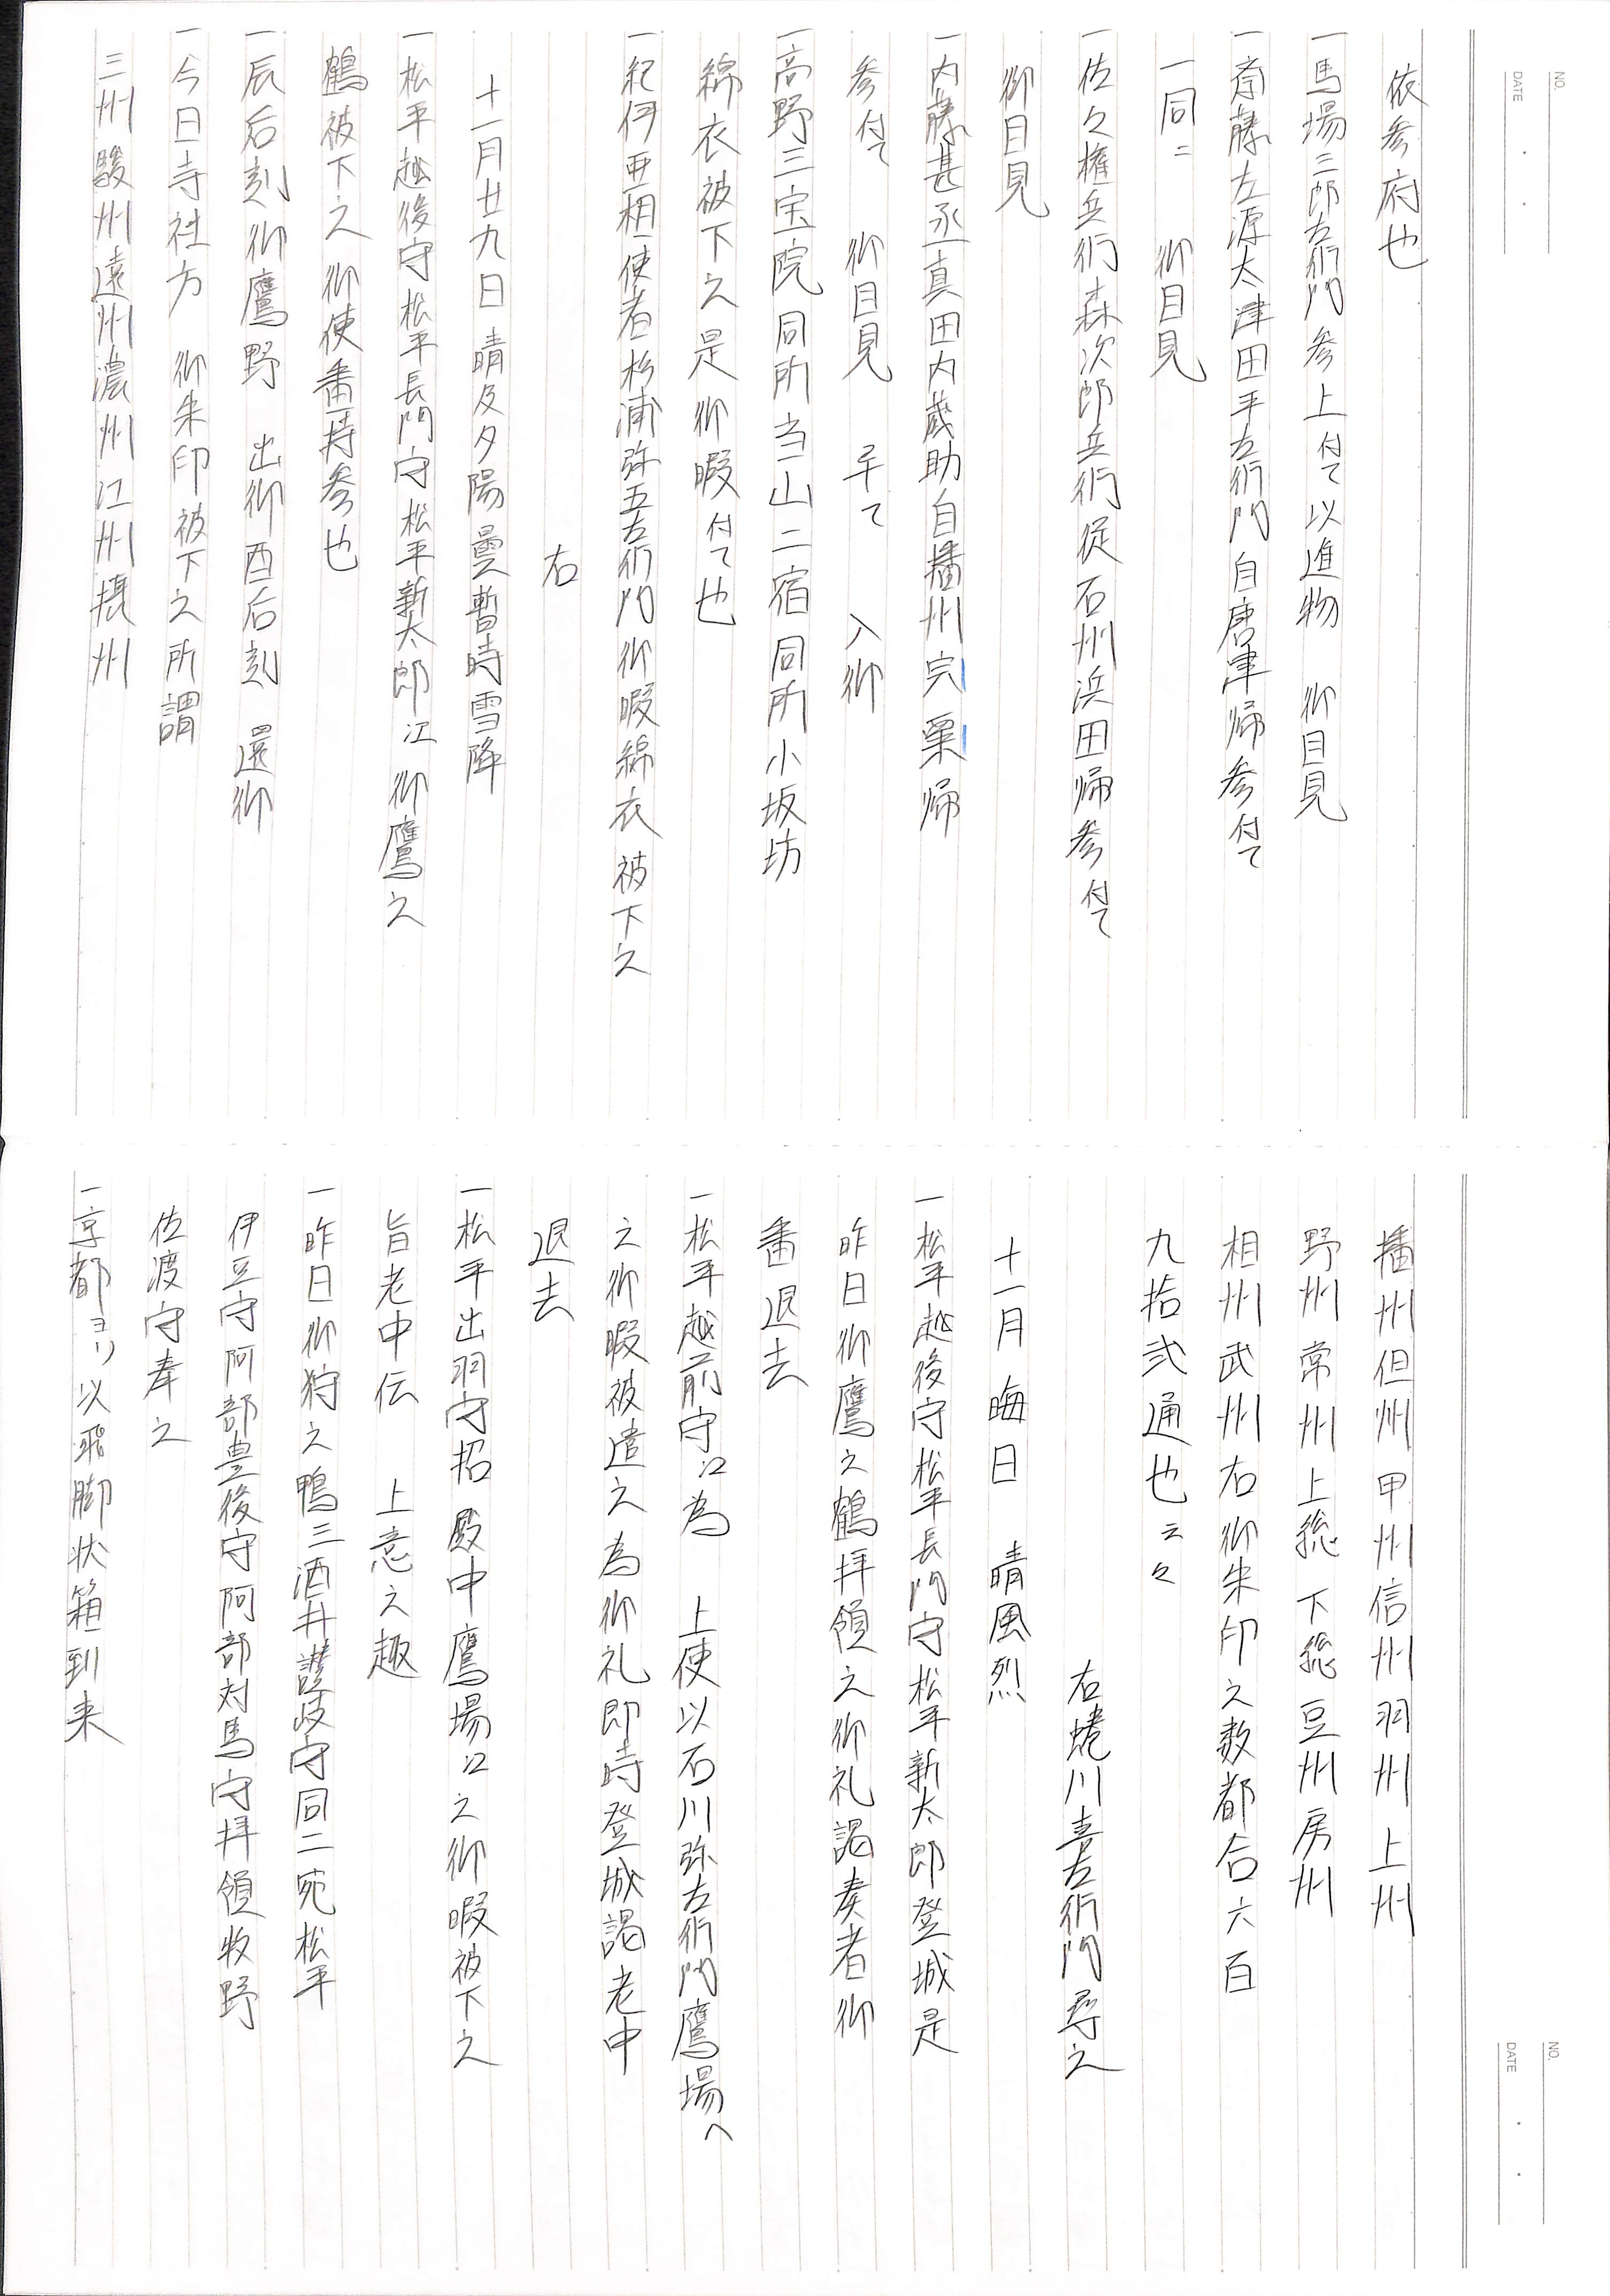 NO.
DATE
依参府也
一馬場三郎左衛門参上付て以進物 御目見
一斎藤左源太津田平左衛門自唐津帰参付て
一同ニ 御目見
一佐々権兵衛森次郎兵衛従石州浜田帰参付て
御目見
一内藤甚丞真田内蔵助自播州宍粟帰
参付て 御目見 于て 入御
一高野三宝院同所当山二宿同所小坂坊
綿衣被下之是御暇付て也
一紀伊亜相使者杉浦弥五左衛門御暇綿衣被下之
右
十一月廿九日 晴及夕陽曇暫時雪降
一松平越後守松平長門守松平新太郎江御鷹之
鶴被下之御使番持参也
一辰后刻御鷹野 出御酉后刻 還御
一今日寺社方 御朱印被下之所謂
三州駿州遠州濃州江州摂州
NO.
DATE
播州但州甲州信州羽州上州
野州常州上総下総豆州房州
相州武州右御朱印之数都合六百
九拾弐通也云々
右蜷川喜左衛門尋之
十一月晦日 晴風烈
一松平越後守松平長門守松平新太郎登城是
昨日御鷹之鶴拝領之御礼謁奏者御
番退去
一松平越前守江為 上使以石川弥左衛門鷹場へ
之御暇被遣之為御礼即時登城謁老中
退去
一松平出羽守招殿中鷹場江之御暇被下之
旨老中伝 上意之趣
一昨日御狩之鴨三酒井讃岐守同二宛松平
伊豆守阿部豊後守阿部対馬守拝領牧野
佐渡守奉之
一京都ヨリ以飛脚状箱到来